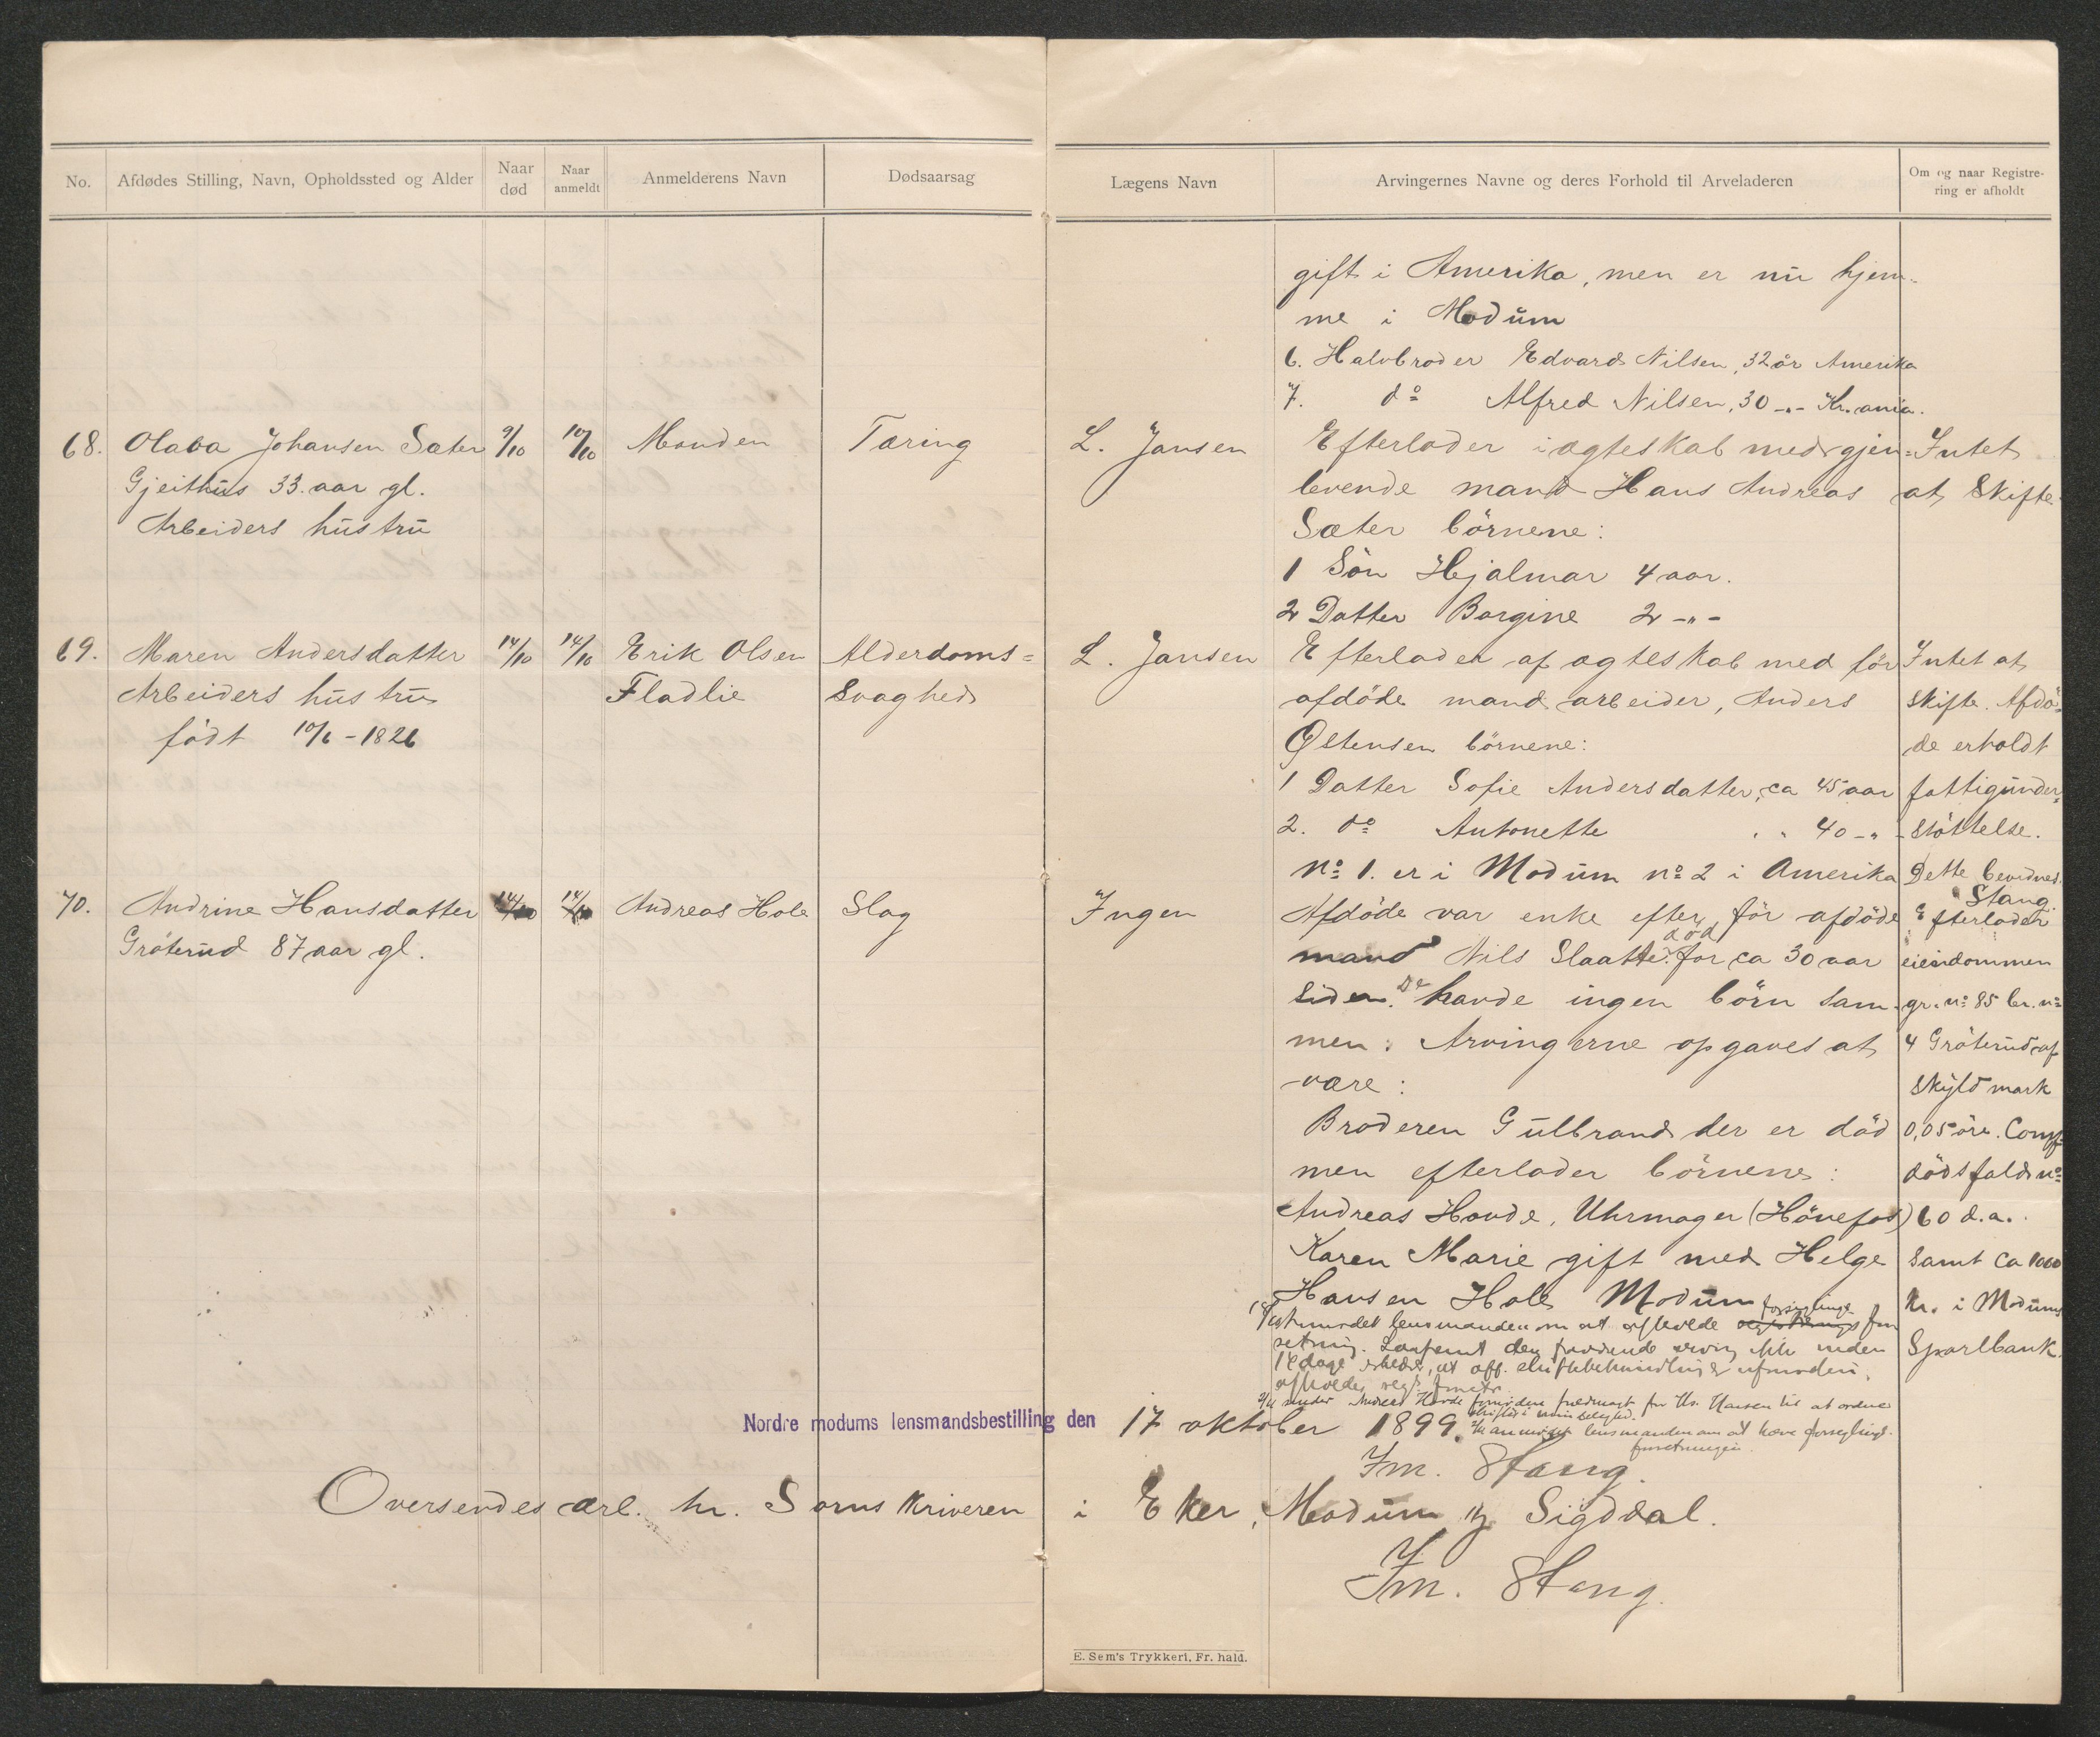 No.
Afdødes Stilling, Navn, Opholdssted og Alder
Naar død
Naar anmeldt
Anmelderens Navn
Dødsaarsag
Lægens Navn
Arvingernes Navne og deres Forhold til Arveladeren
Om og naar Registre-
ring er afholdt
gift i Amerika, men er nu hjem-
me i Modum
6. Halvbroder Edvard Nilsen, 32 år Amerika
7. do Alfred Nilsen, 30 -"- Kr.ania.
68. Olava Johansen Sæter 9/10 10/10 Manden Tæring L. Jansen
Gjeithus 33 aar gl.
Arbeiders hustru
Efterlader i ægteskab med gjen=
levende mand Hans Andreas
Sæter börnene:
1 Sön Hjalmar 4 aar.
2 Datter Borgine 2 -"-
Intet
at skifte.
69. Maren Andersdatter 14/10 14/10 Erik Olsen Alderdoms= L. Jansen
Arbeiders hustru Fladlie Svaghed
född 10/6 - 1826
Efterlader af ægteskab med för
afdöde mand arbeider, Anders
Östensen börnene:
1 Datter Sofie Andersdatter, ca 45 aar
2. do Antonette " " 40 -"-
No 1. er i Modum no 2 i Amerika
Intet at
skifte. Afdö=
de erholdt
fattigunder=
stöttelse.
Dette bevidnes
Stang.
70. Andrine Hansdatter 14/10 14/10 Andreas Hole Slag Ingen
Gröterud 87 aar gl.
Afdöde var enke efter för afdöde
mand Nils Slaatte död for ca 30 aar
siden. De havde ingen börn sam-
men. Arvingerne opgaves at
være:
Broderen Gulbrand der er död
men efterlader börnene:
Andreas Hovde, Uhrmager (Hönefos)
Karen Marie gift med Helge
Hansen Hole Modum
Efterlader
eiendommen
gr. no 85 br. no
4 Gröterud af
skyld mark
0,05 öre. Conf
dödsfald no
60 d.a.
samt ca 1000
kr. i Modums
Sparebank.
anmodet lensmanden om at afholde forseglings for
retning. den arving ikke inden
14 dage at off. skiftebehandling
afholdes
Andreas Hovde fuldmagt fra Hansen til at ordne
anmodet lensmanden om at hæve forseglings-
forretningen.
Nordre modums lensmandsbestilling den 17 oktober 1899.
Im. Stang.
Oversendes ærl. hr. Sorenskriveren i Eker, Modum og Sigdal.
Im. Stang.
E. Sem's Trykkeri, Fr. hald.